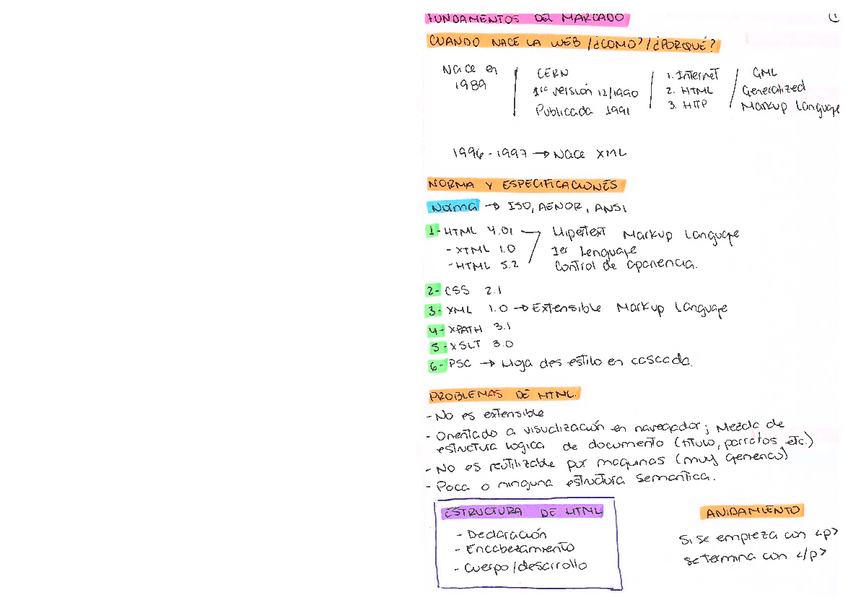 FUNDAMENTOS DEL MARCADO
1
CUANDO NACE LA WEB /¿COMO?/¿PORQUÉ?
Nace en
1989
CERN
1ra versión 12/1990
Publicada 1991
1. Internet
2. HTML
3. HTTP
GML
Generalized
Markup Language
1996-1997 → Nace XML
NORMA Y ESPECIFICACIONES
Norma → ISO, AENOR, ANSI
1- HTML 4.01
- XTML 1.0
- HTML 5.2
Hipertext Markup Language
1er Lenguage
Control de apariencia.
2- CSS 2.1
3- XML 1.0 → Extensible Markup Language
4- XPATH 3.1
5- XSLT 3.0
6- PSC → Hoja des estilo en cascada.
PROBLEMAS DE HTML.
- No es extensible
- Orientado a visualización en navegador; Mezcla de
estructura logica de documento (titulo, parrafos, etc.)
- No es reutilizable por maquinas (muy generico)
- Poca o ninguna estructura semantica.
ESTRUCTURA DE HTML
- Declaración
- Encabezamiento
- Cuerpo/desarrollo
ANIDAMIENTO
Si se empieza con <p>
se termina con </p>